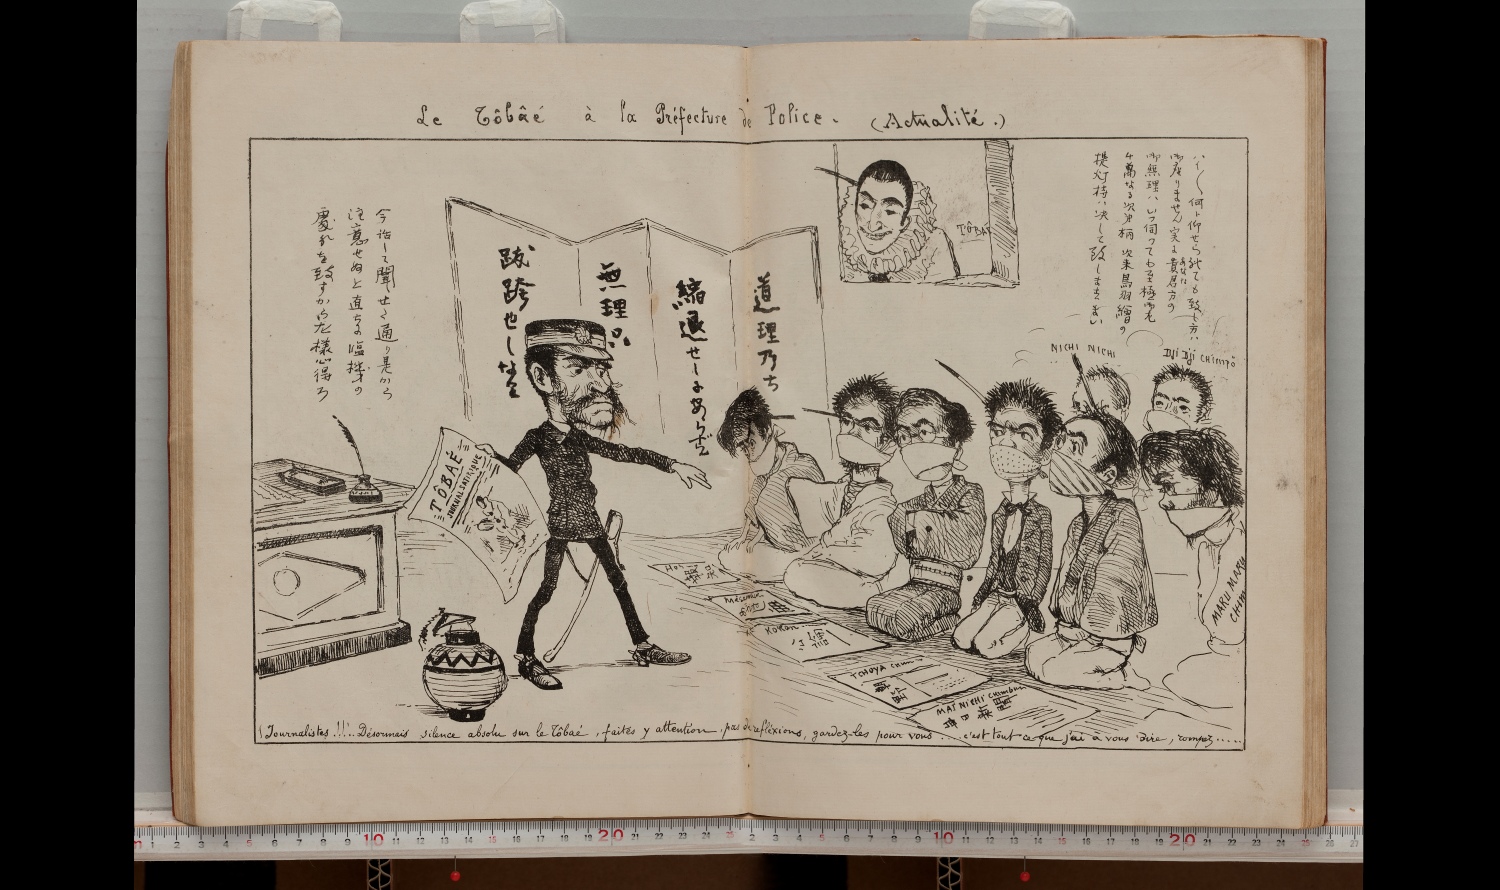 Le Tôbâé à la Préfecture de Police. (Actualité.)
ハイ〳〵何ト仰せられても致し方ハ
御座りません実に貴君方の
御無理ハいつ伺つても至極御尤
千萬なる次第柄 次来鳥羽繪の
提灯持ハ决して致しますまい
今諭して聞せた通り是から
注意せぬと直ちに臨機の
處分を致すから左様心得ろ
道理乃ち
縮退せしにあらず
無理ハ
跋跨也しなと
TÔBAÉ
NICHI NICHI
DJI DJI CHIMPÔ
TÔBAÉ
JOURNAL SATIRIQUE
MARU MARU
Hotchi
Mésamachi
Kokan
TCHOYA CHIMBUN
MAÏ NICHI CHIMBUN
(Journalistes !!!.. Désormais silence absolu sur le Tôbaé, faites y attention, pas de réfléxions, gardez-les pour vous ... c'est tout ce que j'ai à vous dire, rompez.....